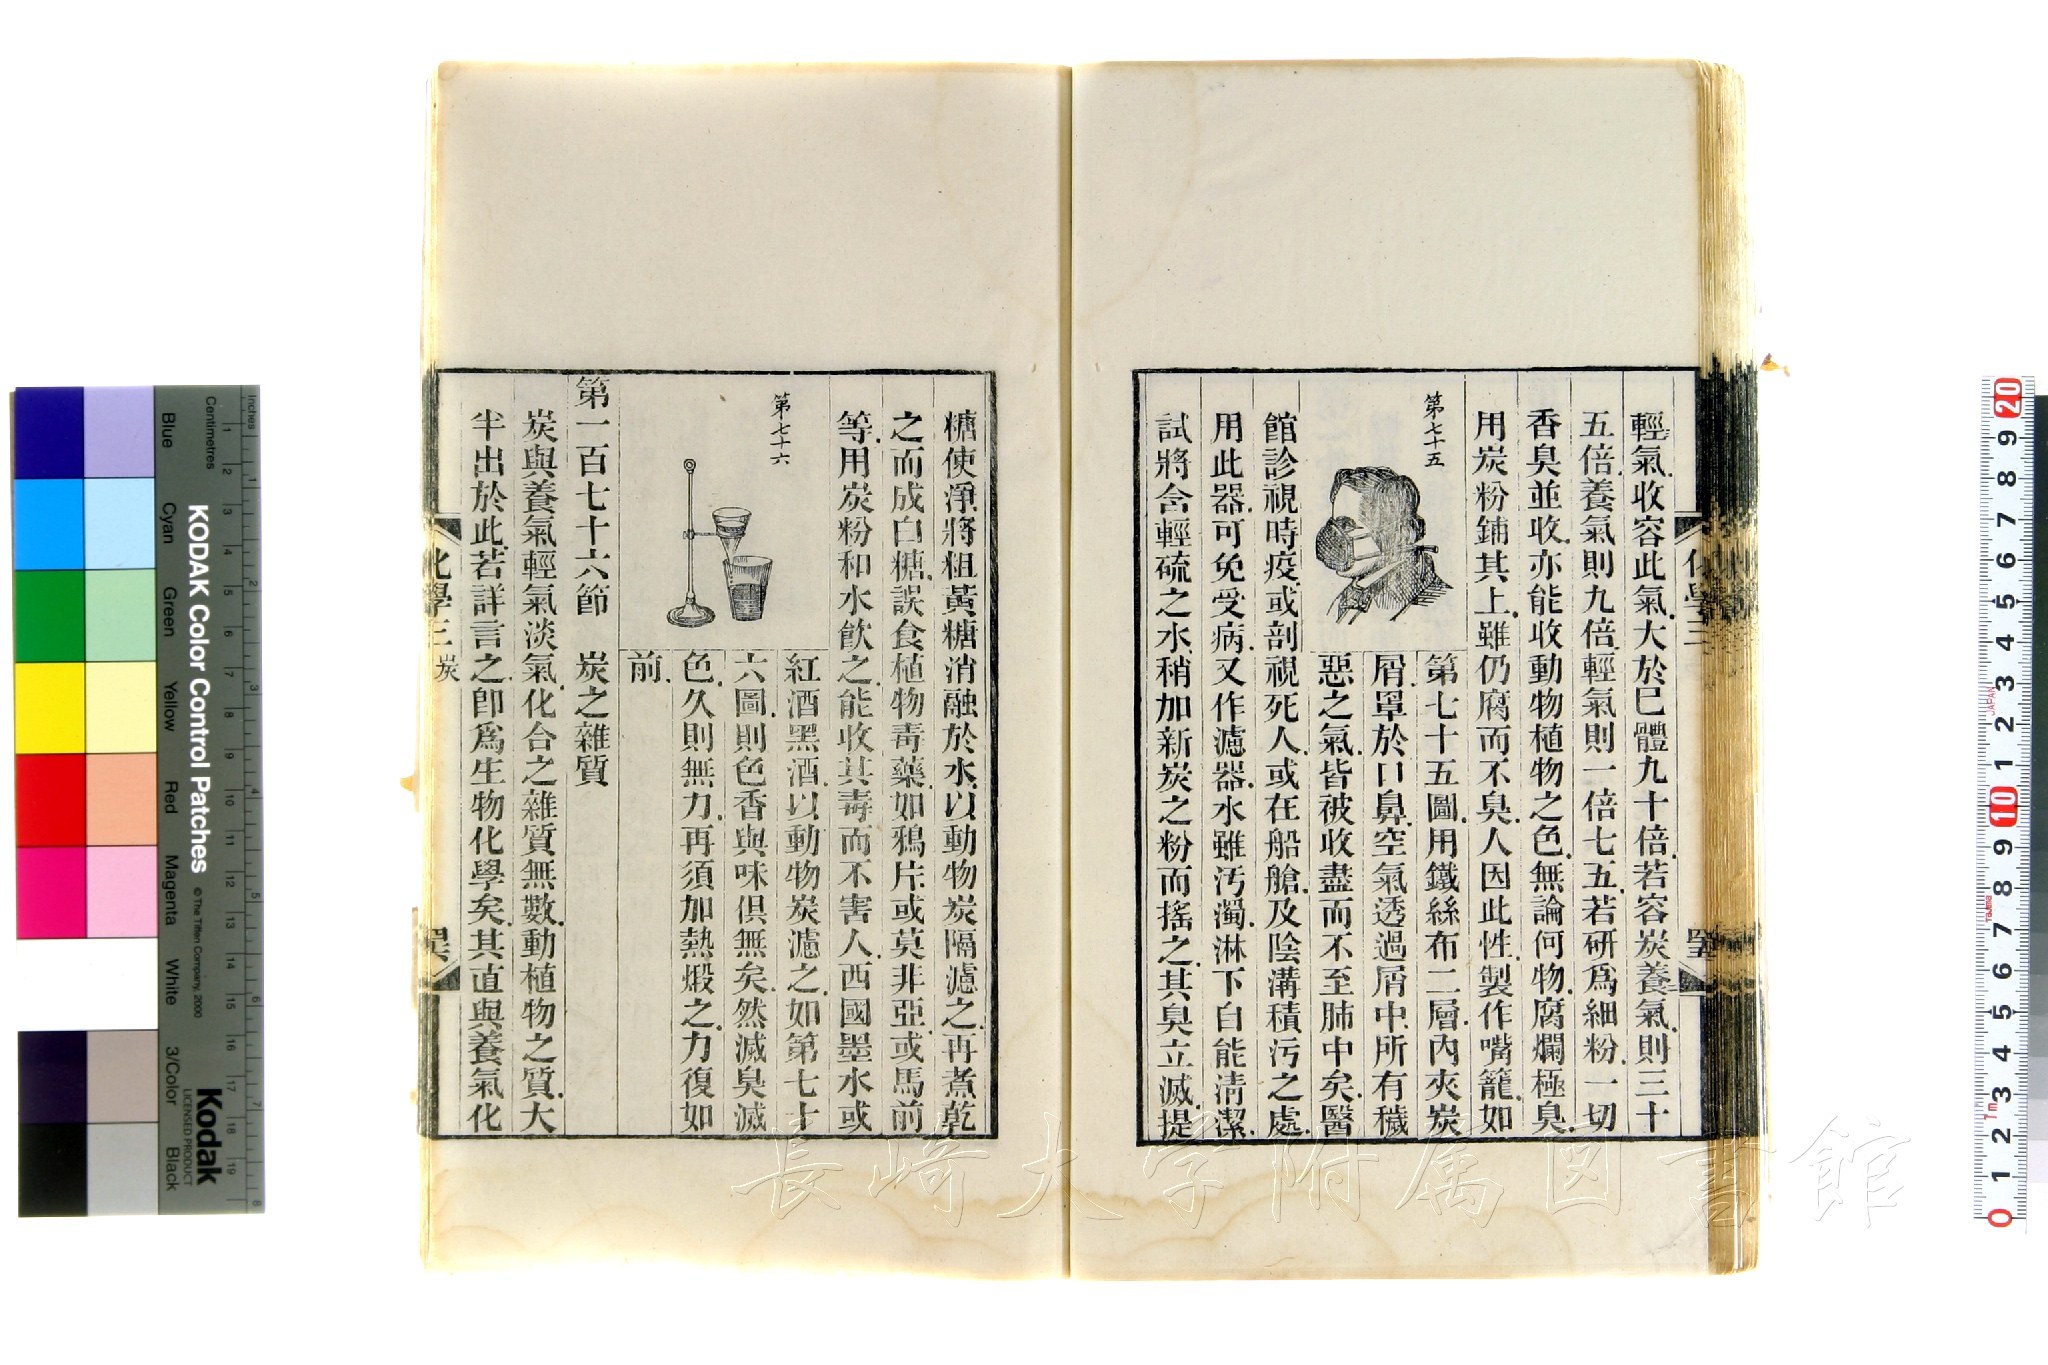 輕氣.收容此氣.大於已體九十倍.若容炭養氣.則三十
五倍.養氣則九倍.輕氣則一倍七五.若研爲細粉.一切
香臭並收.亦能收動物植物之色.無論何物.腐爛極臭.
用炭粉鋪其上.雖仍腐而不臭.人因此性.製作嘴籠.如
第七十五
第七十五圖.用鐵絲布二層.內夾炭
屑.罩於口鼻.空氣透過屑中.所有穢
惡之氣.皆被收盡.而不至肺中矣.醫
館診視時疫.或剖視死人.或在船艙.及陰溝積污之處.
用此器.可免受病.又作濾器.水雖汚濁.淋下白能清潔.
試將含輕硫之水.稍加新炭之粉而搖之.其臭立滅.提
化學三
糖使淨.將粗黃糖消融於水.以動物炭隔濾之.再煮乾
之而成白糖.誤食植物毒藥.如鴉片.或莫非亞.或馬前
等.用炭粉和水飮之.能收其毒而不害人.西國墨水或
第七十六
紅酒黑酒.以動物炭濾之.如第七十
六圖.則色香與味俱無矣.然滅臭滅
色.久則無力.再須加熱煅之.力復如
前.
第一百七十六節 炭之雜質
炭與養氣輕氣淡氣.化合之雜質無數.動植物之質.大
半出於此.若詳言之.卽爲生物化學矣.其直與養氣化
化學三 炭
Inches
Centimetres
KODAK Color Control Patches
© The Tiffen Company, 2000
Kodak
LICENSED PRODUCT
Blue
Cyan
Green
Yellow
Red
Magenta
White
3/Color
Black
JAPAN
長崎大学附属図書館